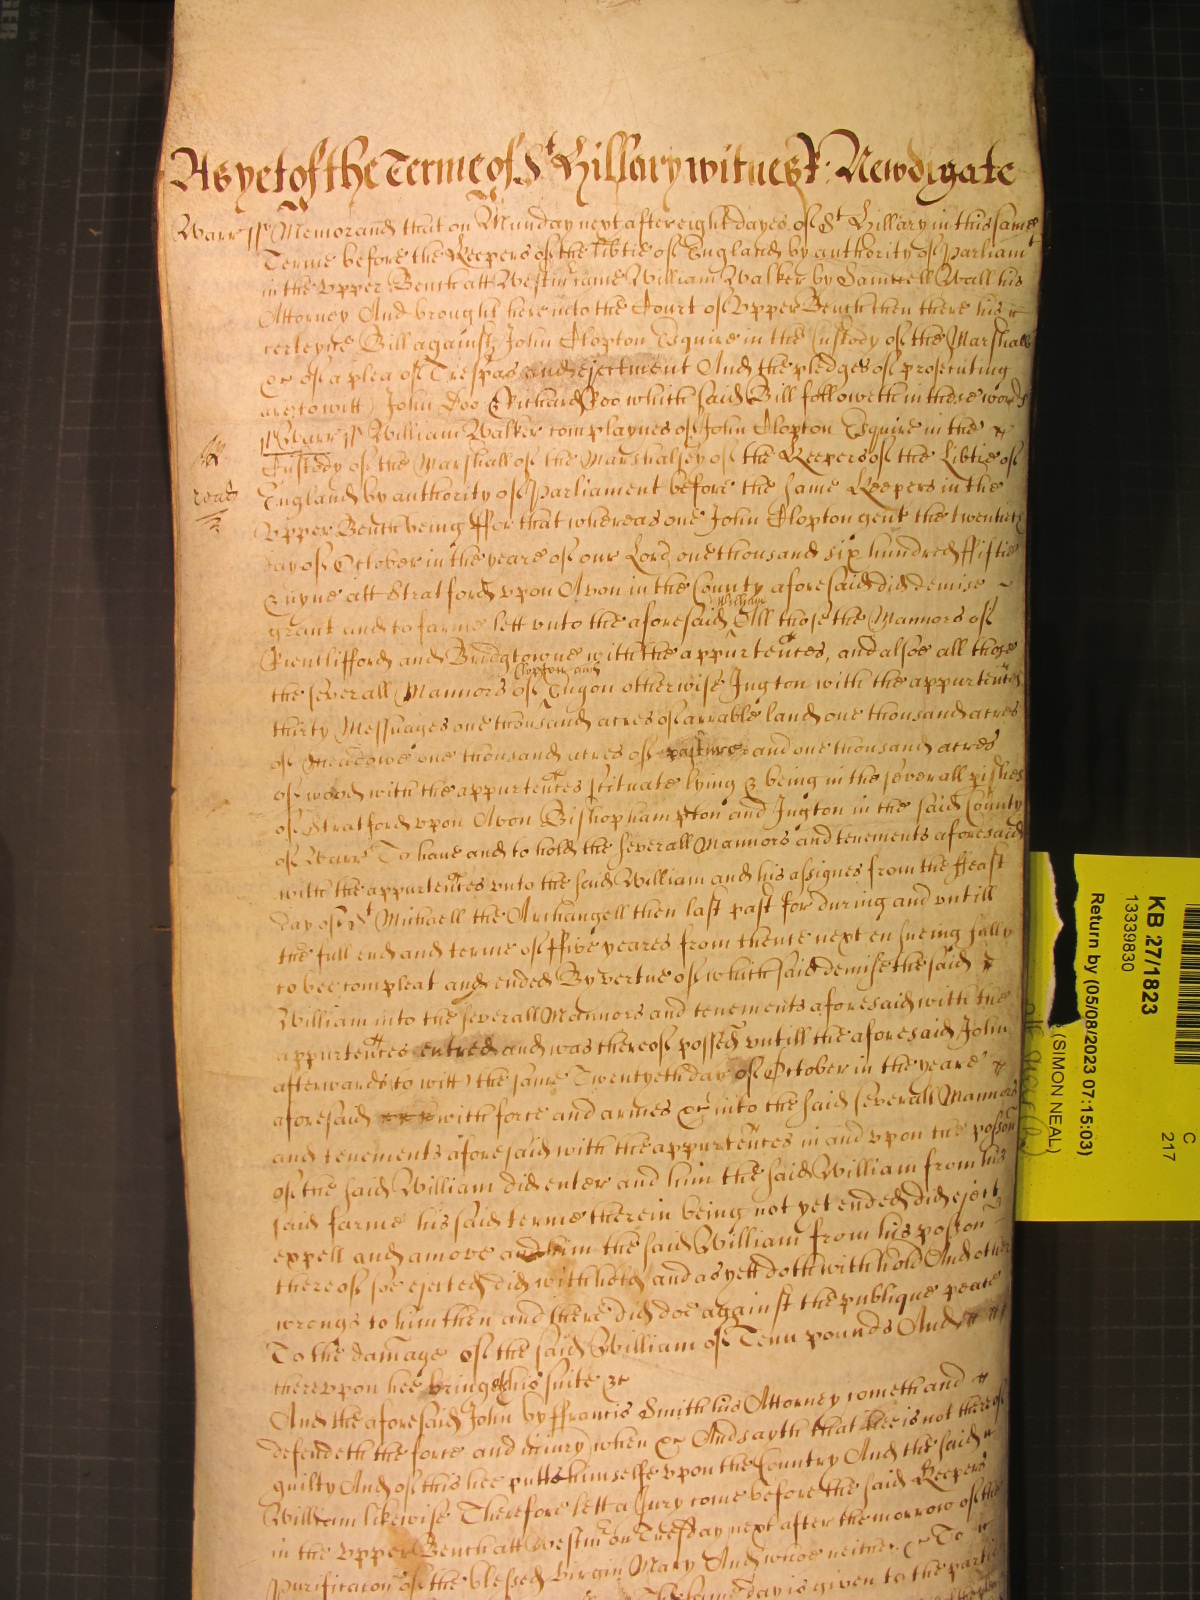 As yet of the Terme of St Hillary witnes R: Newdigate
Warr ss Memorand that on Munday next after eight dayes of St Hillary in this same
Terme before the Keepers of the lib͠tie of England by authority of Parliamt
in the Upper Bench att Westm came William Walker by Samuell Wall his
Attorney And brought here into the Court of Upper Bench then there his
certeyne Bill against John Clopton Esquire in the Custody of the Marshall
&c of a plea of Trespas and ejectment And the pledges of prosecuting
are to witt John Doo & Richard Roo which said Bill followeth in these words
ss Warr ss William Walker complaynes of John Clopton Esquire in the
Custody of the Marshall of the Marshalsey of the Keepers of the Lib͠tie of
England by authority of Parliament before the same Keepers in the
Upper Bench being ffor that whereas one John Clopton gent the twentieth
day of October in the yeare of our Lord one thousand six hundred ffiftie
& nyne att Stratford upon Avon in the County aforesaid did demise
grant and to farme lett unto the aforesaid William All those the Mannors of
and Bridgtowne with the appurten͠ces, and alsoe all those
the severall Mannors of Clopton and Ingon otherwise Ington with the appurten͠ces
thirty Messuages one thousand acres of arrable land one thousand acres
of meadowe one thousand acres of pasture and one thousand acres
of wood with the appurten͠ces scituate lying & being in the severall p͠ishes
of Stratford upon Avon Bishop hampton and Ington in the said County
of Warr To have and to hold the severall Mannors and tenements aforesaid
with the appurten͠ces unto the said William and his assignes from the ffeast
day of St Michaell the Archangell then last past for during and untill
the full end and terme of ffive yeares from thence next ensueing fully
to bee compleat and ended By vertue of which said demise the said
William into the severall Mannors and tenements aforesaid with the
appurten͠ces entred and was thereof possed untill the aforesaid John
afterwards to witt the same Twentyeth day of October in the yeare
aforesaid with force and armes &c into the said severall Mannors
and tenements aforesaid with the appurten͠ces in and upon the posson
of the said William did enter and him the said William from his
said farme his said terme therein being not yet ended did eject
expell and amove and him the said William from his posson
thereof soe ejected did withhold and as yett doth withhold And other
wrongs to him then and there did doe against the publique peace
To the damage of the said William of Tenn pounds And
thereupon hee brings his suite &c
And the aforesaid John by ffrancis Smith his Attorney cometh and
defendeth the force and iniury when &c And sayth that hee is not thereof
guilty And of this hee putts himselfe upon the Country And the said
William likewise Therefore lett a Jury come before the said Keepers
in the Upper Bench att Westm on Tuesday next after the morrow of the
Purificac͠on of the blessed Virgin Mary And whoe neither &c To
The same day is given to the partie
KB 27/1823
13339830
Return by (05/08/2023 07:15:03)
(SIMON NEAL)
C
217